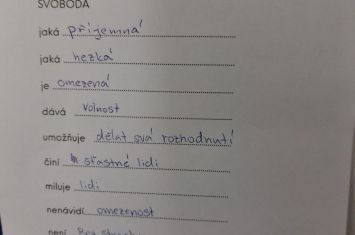 SVOBODA
jaká příjemná
jaká hezká
je omezená
dává volnost
umožňuje dělat svá rozhodnutí
činí šťastné lidi
miluje lidi
nenávidí omezenost
není Bez